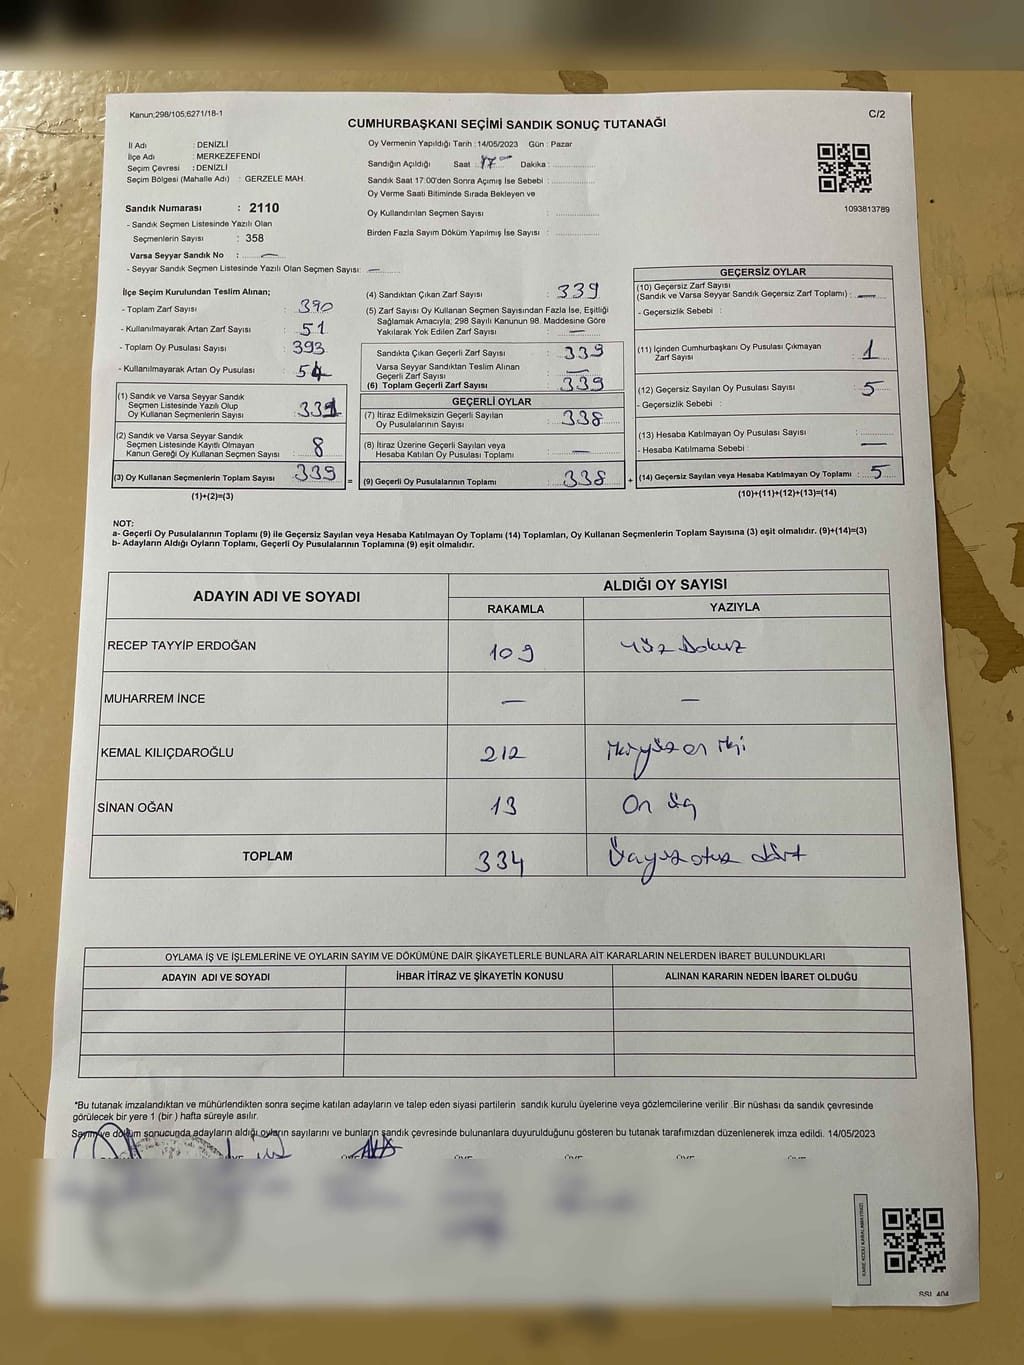 Kanun;298/105;6271/18-1
C/2
CUMHURBAŞKANI SEÇİMİ SANDIK SONUÇ TUTANAĞI
İl Adı : DENİZLİ
İlçe Adı : MERKEZEFENDİ
Seçim Çevresi : DENİZLİ
Seçim Bölgesi (Mahalle Adı) : GERZELE MAH.
Oy Vermenin Yapıldığı Tarih : 14/05/2023 Gün : Pazar
Sandığın Açıldığı Saat : 17 Dakika :
Sandık Saat 17:00'den Sonra Açımış İse Sebebi :
Oy Verme Saati Bitiminde Sırada Bekleyen ve
Oy Kullandırılan Seçmen Sayısı :
Birden Fazla Sayım Döküm Yapılmış İse Sayısı :
1093813789
Sandık Numarası : 2110
- Sandık Seçmen Listesinde Yazılı Olan
Seçmenlerin Sayısı : 358
Varsa Seyyar Sandık No : —
- Seyyar Sandık Seçmen Listesinde Yazılı Olan Seçmen Sayısı: —
İlçe Seçim Kurulundan Teslim Alınan;
- Toplam Zarf Sayısı : 390
- Kullanılmayarak Artan Zarf Sayısı : 51
- Toplam Oy Pusulası Sayısı : 393
- Kullanılmayarak Artan Oy Pusulası : 54
(1) Sandık ve Varsa Seyyar Sandık
Seçmen Listesinde Yazılı Olup
Oy Kullanan Seçmenlerin Sayısı : 331
(2) Sandık ve Varsa Seyyar Sandık
Seçmen Listesinde Kayıtlı Olmayan
Kanun Gereği Oy Kullanan Seçmen Sayısı : 8
(3) Oy Kullanan Seçmenlerin Toplam Sayısı : 339
(1)+(2)=(3)
(4) Sandıktan Çıkan Zarf Sayısı : 339
(5) Zarf Sayısı Oy Kullanan Seçmen Sayısından Fazla İse, Eşitliği
Sağlamak Amacıyla; 298 Sayılı Kanunun 98. Maddesine Göre
Yakılarak Yok Edilen Zarf Sayısı : —
Sandıkta Çıkan Geçerli Zarf Sayısı : 339
Varsa Seyyar Sandıktan Teslim Alınan
Geçerli Zarf Sayısı : —
(6) Toplam Geçerli Zarf Sayısı : 339
GEÇERLİ OYLAR
(7) İtiraz Edilmeksizin Geçerli Sayılan
Oy Pusulalarının Sayısı : 338
(8) İtiraz Üzerine Geçerli Sayılan veya
Hesaba Katılan Oy Pusulası Toplamı : —
(9) Geçerli Oy Pusulalarının Toplamı : 338
GEÇERSİZ OYLAR
(10) Geçersiz Zarf Sayısı
(Sandık ve Varsa Seyyar Sandık Geçersiz Zarf Toplamı) : —
- Geçersizlik Sebebi :
(11) İçinden Cumhurbaşkanı Oy Pusulası Çıkmayan
Zarf Sayısı : 1
(12) Geçersiz Sayılan Oy Pusulası Sayısı : 5
- Geçersizlik Sebebi :
(13) Hesaba Katılmayan Oy Pusulası Sayısı :
- Hesaba Katılmama Sebebi : —
(14) Geçersiz Sayılan veya Hesaba Katılmayan Oy Toplamı : 5
(10)+(11)+(12)+(13)=(14)
NOT:
a- Geçerli Oy Pusulalarının Toplamı (9) ile Geçersiz Sayılan veya Hesaba Katılmayan Oy Toplamı (14) Toplamları, Oy Kullanan Seçmenlerin Toplam Sayısına (3) eşit olmalıdır. (9)+(14)=(3)
b- Adayların Aldığı Oyların Toplamı, Geçerli Oy Pusulalarının Toplamına (9) eşit olmalıdır.
ADAYIN ADI VE SOYADI
ALDIĞI OY SAYISI
RAKAMLA YAZIYLA
RECEP TAYYİP ERDOĞAN 109 Yüz Dokuz
MUHARREM İNCE — —
KEMAL KILIÇDAROĞLU 212 İkiyüz on iki
SİNAN OĞAN 13 On üç
TOPLAM 334 Üçyüz otuz dört
OYLAMA İŞ VE İŞLEMLERİNE VE OYLARIN SAYIM VE DÖKÜMÜNE DAİR ŞİKAYETLERLE BUNLARA AİT KARARLARIN NELERDEN İBARET BULUNDUKLARI
ADAYIN ADI VE SOYADI İHBAR İTİRAZ VE ŞİKAYETİN KONUSU ALINAN KARARIN NEDEN İBARET OLDUĞU
*Bu tutanak imzalandıktan ve mühürlendikten sonra seçime katılan adayların ve talep eden siyasi partilerin sandık kurulu üyelerine veya gözlemcilerine verilir .Bir nüshası da sandık çevresinde
görülecek bir yere 1 (bir ) hafta süreyle asılır.
Sayım ve döküm sonucunda adayların aldığı oyların sayılarını ve bunların sandık çevresinde bulunanlara duyurulduğunu gösteren bu tutanak tarafımızdan düzenlenerek imza edildi. 14/05/2023
KARE KODU KARALAMAYINIZ!